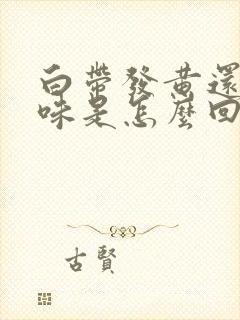 白帶發黃還
味是怎麼回
古賢